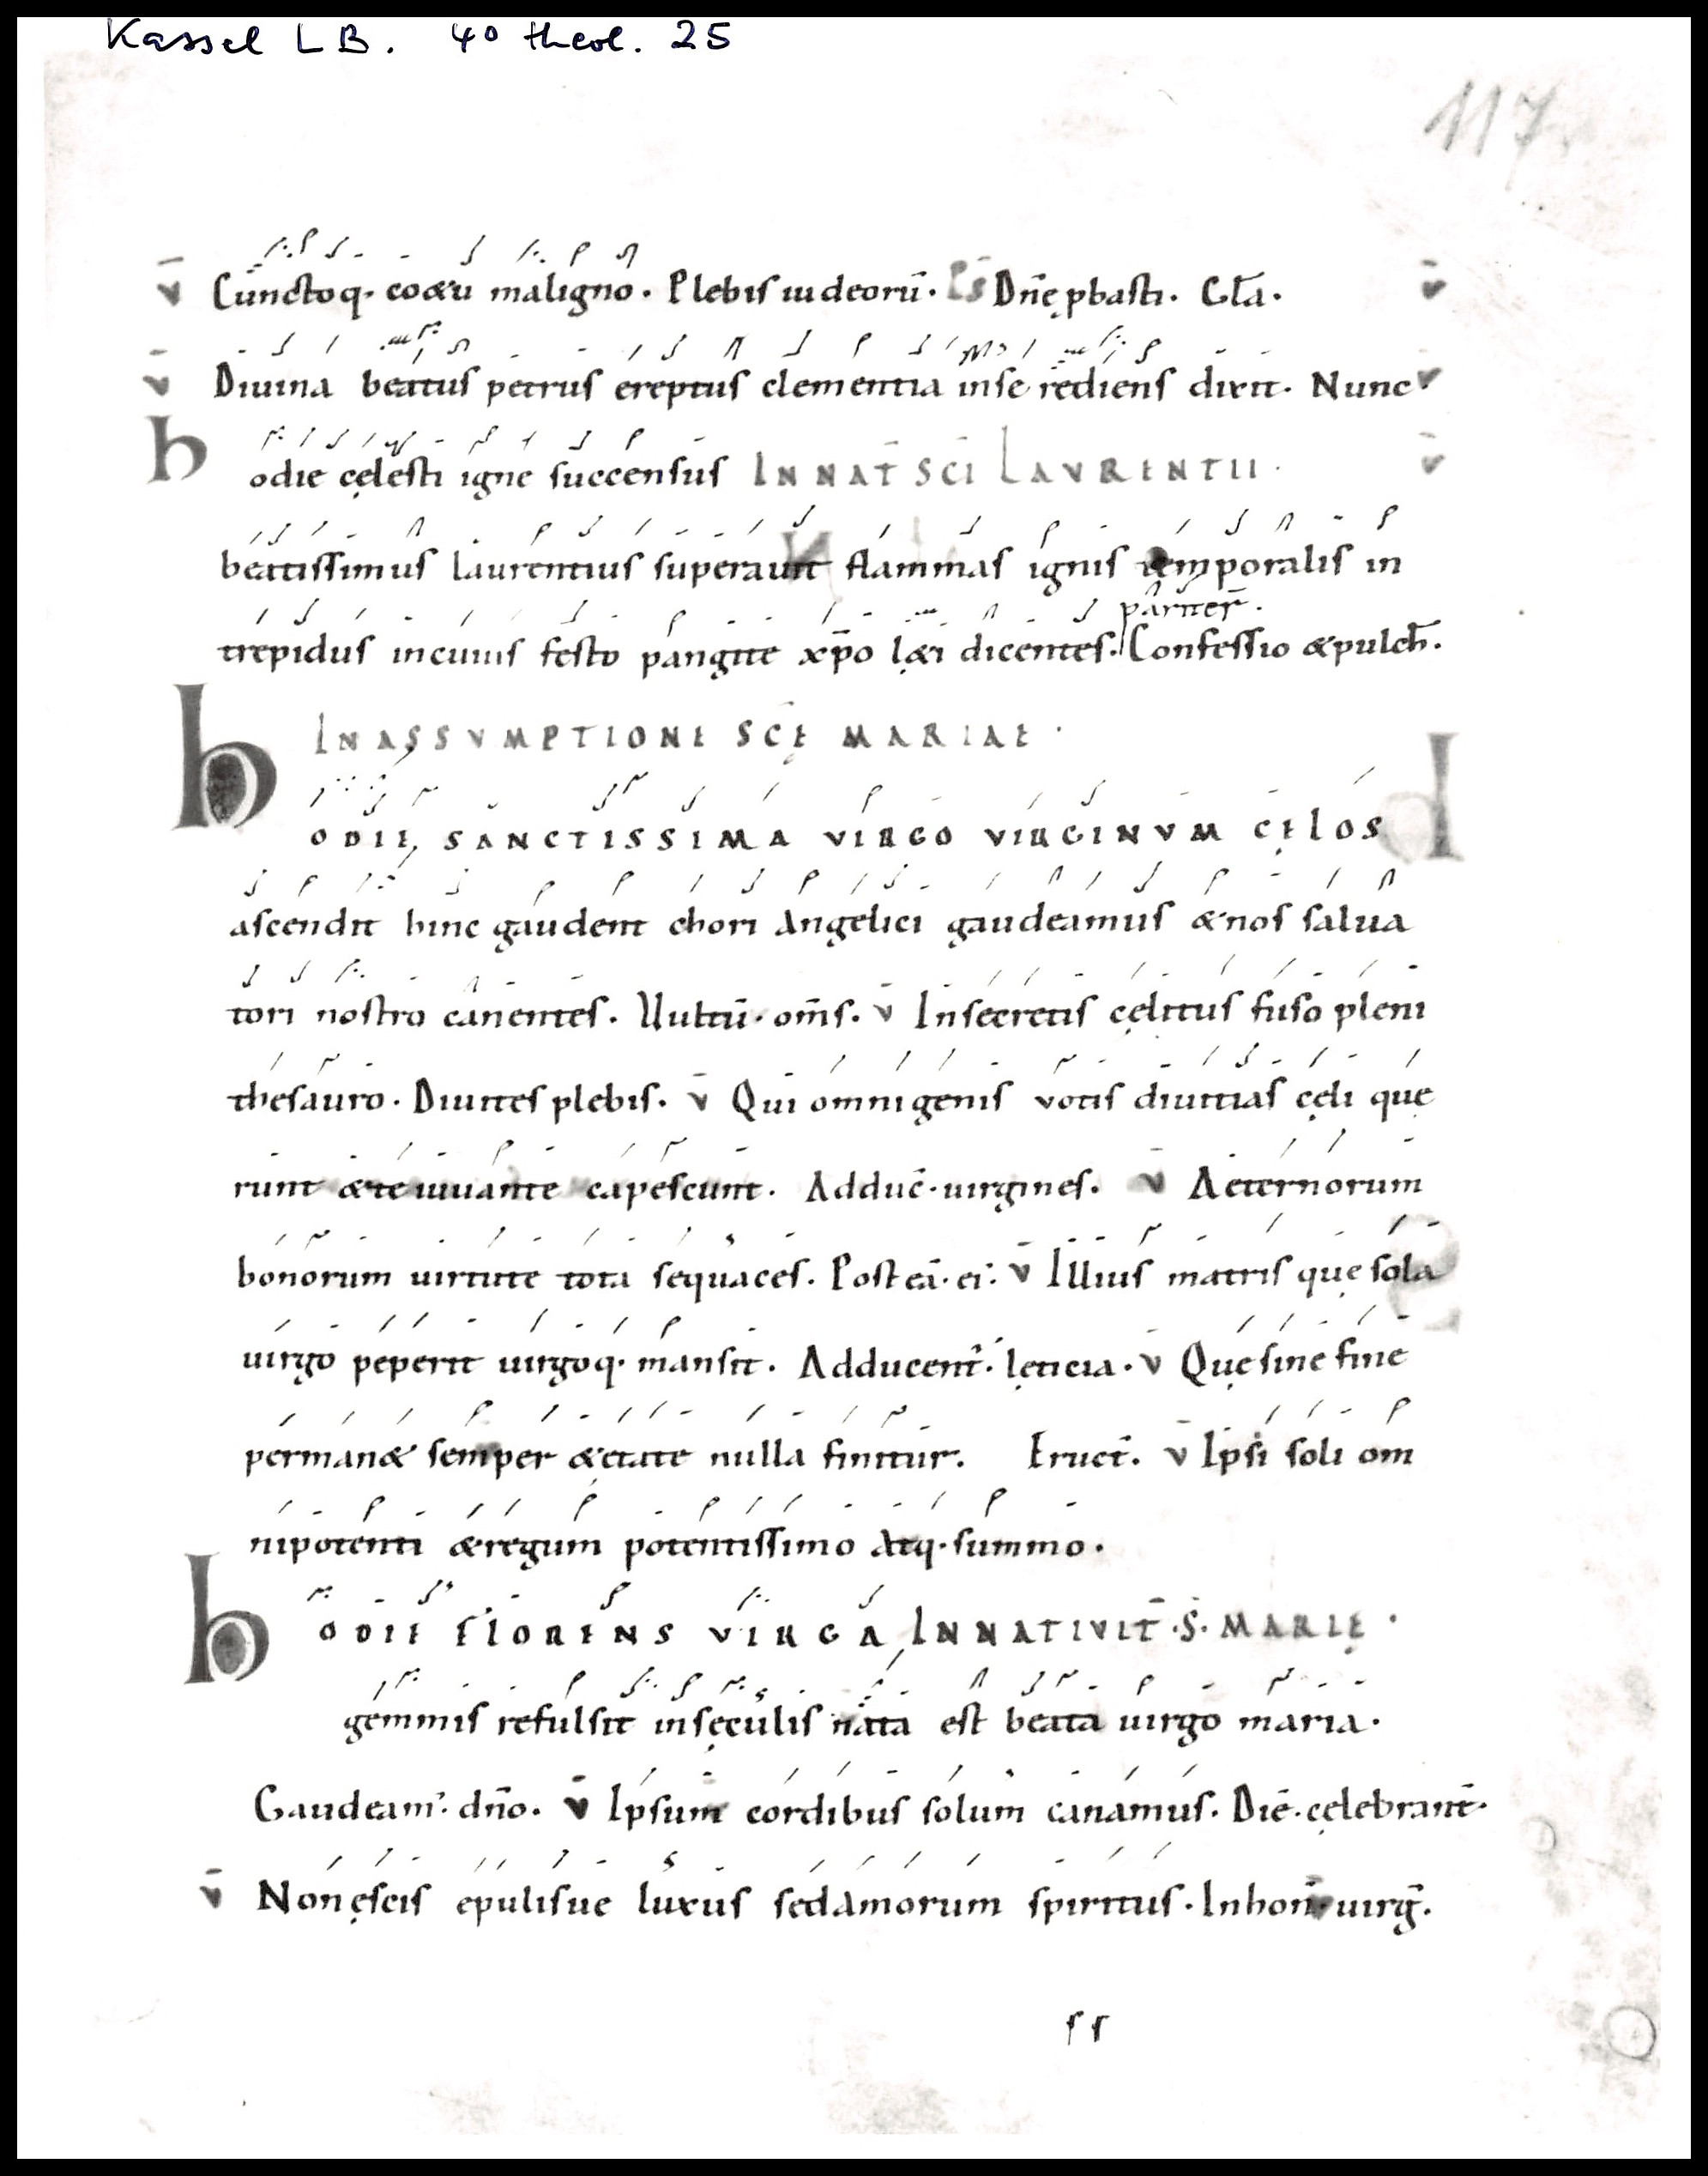 Kassel LB. 4° theol. 25
117
v̄ Cunctoq· coætu maligno· Plebis iudeorū· Ps Dn̄e ꝓbasti· Gl̄a· v̄
v̄ Diuina beatus petrus ereptus clementia inse rediens dixit· Nunc v̄
hodie cęlesti igne succensus IN NAT̄ SC̄I LAVRENTII· v̄
beatissimus laurentius superauit flammas ignis temporalis in
pariter·
trepidus incuius festo pangite xp̄o læti dicentes· Confessio æpulch̄·
IN ASSVMPTIONE SC̄Ę MARIAE·
hODIE SANCTISSIMA VIRGO VIRGINVM CĘLOS
ascendit hinc gaudent chori angelici gaudeamus &nos salua
tori nostro canentes· Uultū· om̄s· v̄ Insecretis cęlitus fuso pleni
thesauro· Diuites plebis· v̄ Qui omnigenis votis diuitias cęli quę
runt &te iuuante capescunt· Adduc̄· uirgines· v̄ Aeternorum
bonorum uirtute tota sequaces· Post eā· ei: v̄ Illius matris quę sola
uirgo peperit uirgoq· mansit· Adducent̄· lęticia· v̄ Quę sine fine
perman& semper &ętate nulla finitur· Eruct̄· v̄ Ipsi soli om
nipotenti &regum potentissimo atq· summo·
hODIE FLORENS VIRGA IN NATIVIT̄·S·MARIĘ·
gemmis refulsit insęculis nata est beata uirgo maria·
Gaudeam'· dn̄o· v̄ Ipsum cordibus solum canamus· Diē· cęlebrant̄·
v̄ Nonęscis epulisue luxus sedamorum spiritus· Inhon̄· uirḡ·